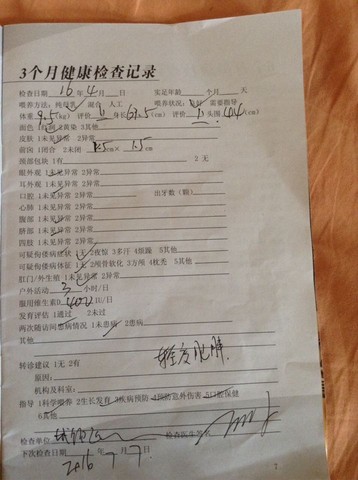 3个月健康检查记录
检查日期 16 年 4 月 日 实足年龄 个月 天
喂养方法：纯母乳 混合 人工 喂养状况：良好 需要指导
体重 9.5 (kg) 评价 身长 (cm) 评价 头围 (cm)
面色 1红润 2黄染 3其他
皮肤 1未见异常 2异常
前囟 1闭合 2未闭 1.5 cm× 1.5 cm
颈部包块 1有 2无
眼外观 1未见异常 2异常
耳外观 1未见异常 2异常
口腔 1未见异常 2异常 出牙数（颗）
心肺 1未见异常 2异常
腹部 1未见异常 2异常
脐部 1未见异常 2异常
四肢 1未见异常 2异常
可疑佝偻病症状 1无 2夜惊 3多汗 4烦躁 5其他
可疑佝偻病体征 1无 2颅骨软化 3方颅 4枕秃 5其他
肛门/外生殖 1未见异常 2异常
户外活动 3 小时/日
服用维生素D 400 IU/日
发育评估 1通过 2未过
两次随访间患病情况 1未患病 2患病
其他
转诊建议 1无 2有 轻度肥胖
原因：
机构及科室：
指导 1科学喂养 2生长发育 3疾病预防 4预防意外伤害 5口腔保健
6其他
检查单位 检查医生签名
下次检查日期 2016 年 7 月 7 日
7